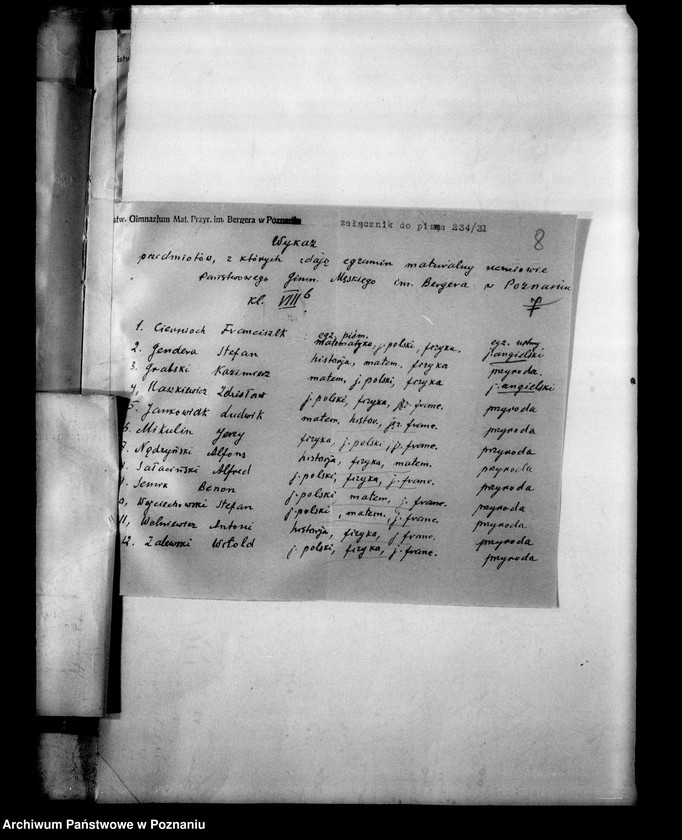 stw. Gimnazjum Mat. Przyr. im. Bergera w Poznaniu
załącznik do pisma 234/31
8
Wykaz
przedmiotów, z których zdają egzamin maturalny uczniowie
Państwowego Gimn. Męskiego im. Bergera w Poznaniu
kl. VIII b
7
egz. piśm. egz. ustny
1. Franciszek : matematyka, j. polski, fizyka. j. angielski
2. Gendera Stefan historja, matem. fizyka przyroda.
3. Grabski Kazimierz matem, j. polski, fizyka j. angielski
4, Zdzisław j. polski, fizyka, j. franc. przyroda
5. Jankowiak Ludwik matem. histor., j. franc. przyroda
6. Mikulin Jerzy fizyka, j. polski, j. franc. przyroda
7. Nędzyński Alfons historja, fizyka, matem. przyroda
8. Sałaciński Alfred j. polski, fizyka, j. franc. przyroda
9. Benon j. polski matem, j. franc. przyroda
10, Wojciechowski Stefan j. polski, matem, j. franc. przyroda
11, Wolniewicz Antoni historja, fizyka, j. franc. przyroda
12. Zalewski Witold j. polski, fizyka, j. franc. przyroda
Archiwum Państwowe w Poznaniu